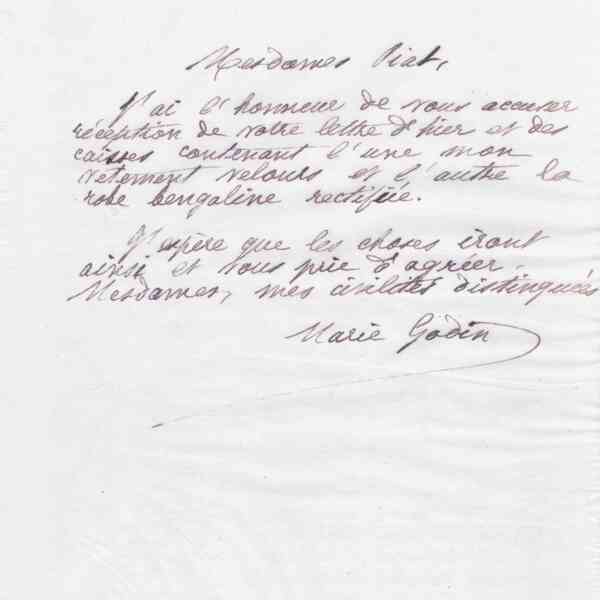 Mesdames Piat,
J'ai l'honneur de vous accuser
réception de votre lettre d'hier et des
caisses contenant l'une mon
vêtement velours et l'autre la
robe bengaline rectifiée.
J'espère que les choses iront
ainsi et vous prie d'agréer,
Mesdames, mes civilités distinguées
Marie Godin